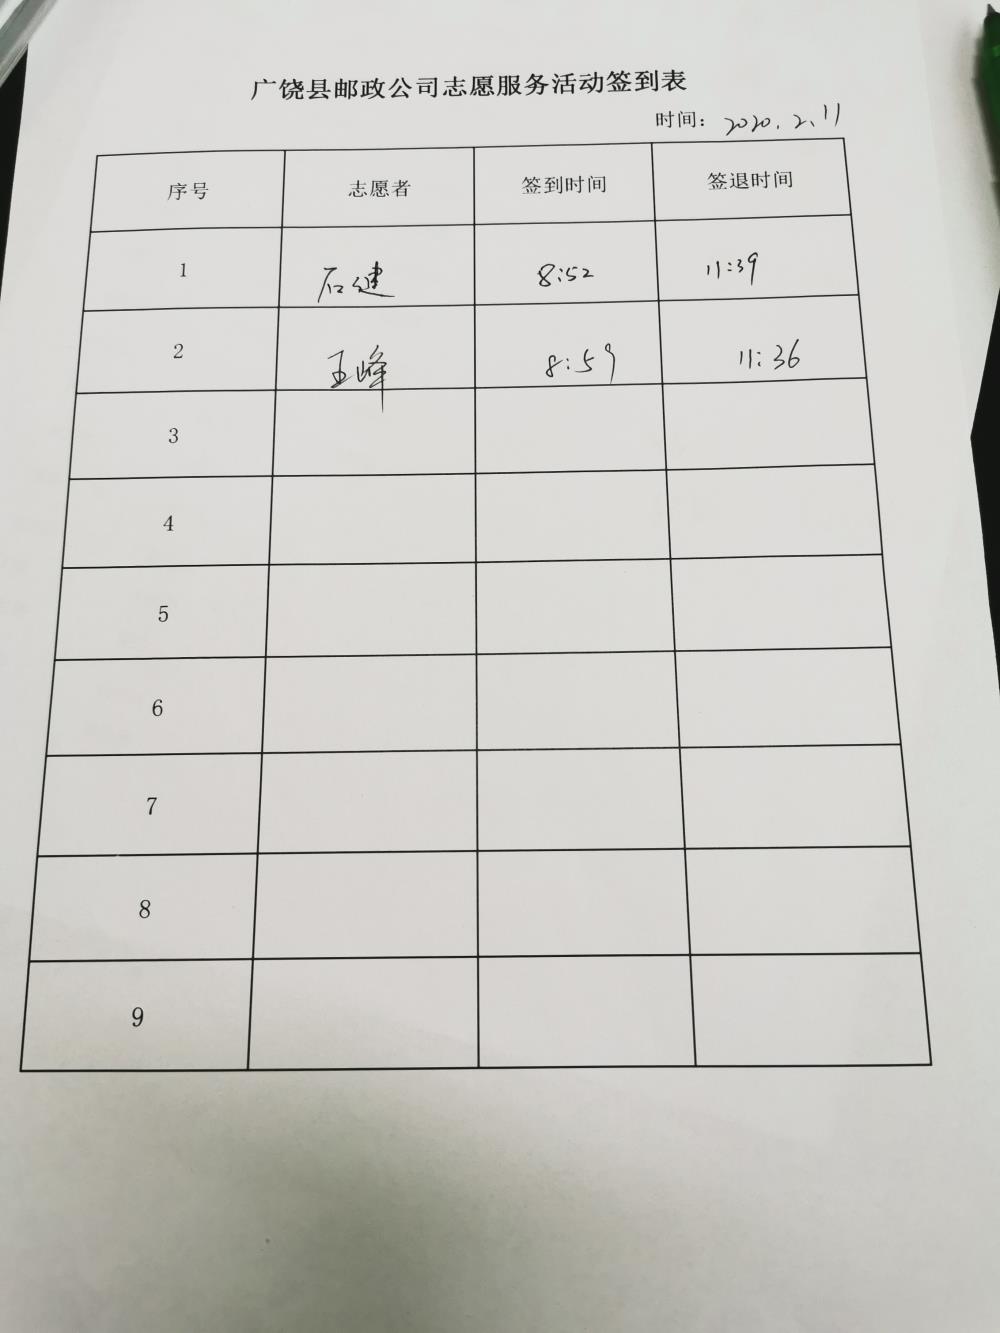 广饶县邮政公司志愿服务活动签到表
时间：2020.2.11
序号 志愿者 签到时间 签退时间
1 石健 8:52 11:39
2 王峰 8:59 11:36
3
4
5
6
7
8
9